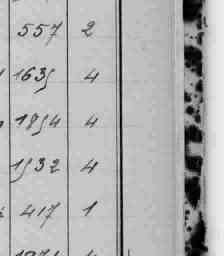 557 2
1635 4
1854 4
1532 4
417 1